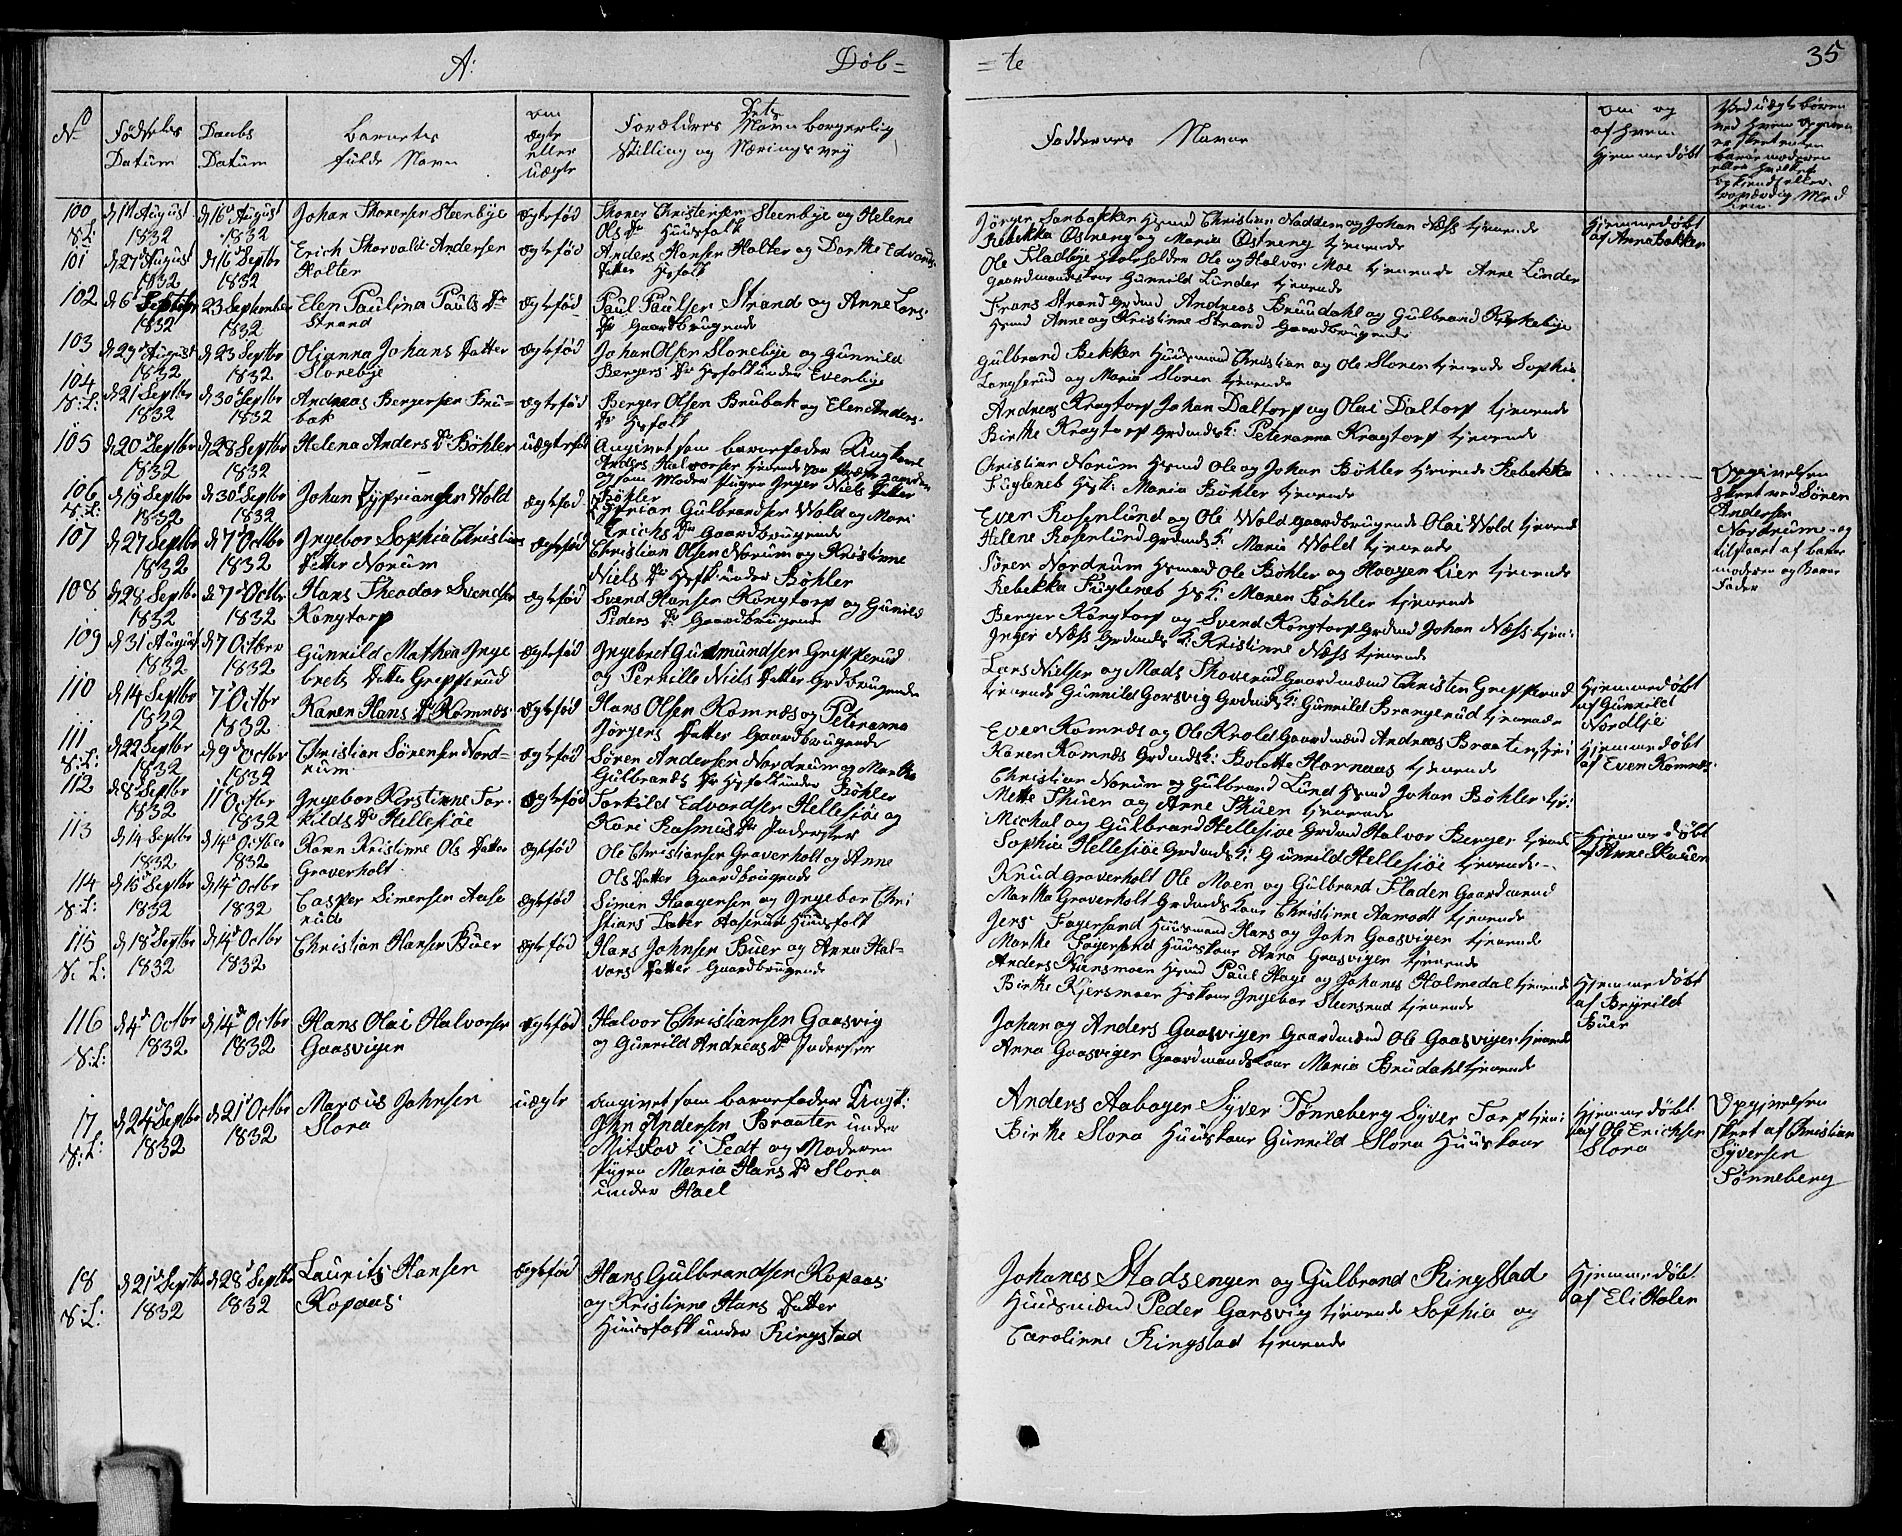 A:
Døb=
=te
35
No
Fødsels Datum
Daabs Datum
Barnets fulde Navn
om ægte eller uægte
Forældres Dets Navn borgerlig Stilling og Næringsvey
Faddernes Navne
om og af hvem hjemmedøbt
100 d 1st August 1832 d 16d August 1832
Johan Thorersen Steenbye
ægtefød
Thorer Christensen Steenbye og Helene
Ols Dr Huusfolk
Jørgen Sanbakken Hsmd Christian Nadden og Johan Næss tjenende
Rebekka Østneng og Maria Østneng tjenende
Hjemmedøbt
af Anna Bakken
101 d 27 August 1832 d 16d Septbr 1832
Erich Thorvald Andersen
Holter
ægtefød
Anders Hansen Holter og Dorthe Edvards
Datter Hsfolk
Ole Fladbye Ole og Halvor Moe tjenende Anne Linder
Gaardmandskone Gunnild Linder tjenende
102 d 6 Septbr 1832 23 September 1832
Elen Paulina Pauls Dr
Strand
ægtefød
Paul Paulsen Strand og Anne Lars
Dr Gaardbrugende
Frans Strand Grdmd Andreas Bruudahl og Gulbrand Kirkebye
Hsmd Anne og Kristinne Strand Gaardbrugende
103 d 29d August 1832 d 23 Septbr 1832
Olianna Johans Datter
Slorebye
ægtefød
Johan Olsen Slorebye og Gunnild
Bergers Dr Hsfolk under Evenbye
Gulbrand Bekken Huusmand Christian og Ole Sloren tjenende Sophia
Langserud og Maria Sloren tjenende
104 d 21 Septbr 1832 d 30d Septbr 1832
Andreas Bergersen Bru-
bak
ægtefød
Berger Olsen Brubak og Elen Anders
Dr Hsfolk
Andreas Kragtorp Johan Daltorp og Olai Daltorp tjenende
Birthe Kragtorp Grdmds K: Peteranna Kragtorp tjenende
105 d 20d Septbr 1832 d 28 Septbr 1832
Helena Anders Dr Bøhler
uægtefød
Angivet som barnefader Ungkarl
Anders Halvorsen tjenende paa
og som Moder Pigen Inger Niels Datter
Bøhler
Christian Norum Hsmd Ole og Johan Bøhler tjenende Rebekka
Fugleneb Hsk: Maria Bøhler tjenende
Opgivelsen
skeet ved Søren
Andersen
Nordrum og
tilstaaet af barne
moderen og Barne
Fader
106 d 19d Septbr 1832 d 30d Septbr 1832
Johan Zypriansen Wold
ægtefød
Zyprian Gulbrandsen Wold og Mari
Erichs Dr Gaardbrugende
Even Rosenlund og Ole Wold Gaardbrugende Olai Wold tjenende
Helene Rosenlund Grdmds K: Maria Wold tjenende
107 d 27 Septbr 1832 d 7d Octbr 1832
Ingebor Sophia Christians
Datter Norum
ægtefød
Christian Olsen Norum og Kristinne
Niels Dr Hsfolk under Bøhler
Søren Nordrum Hsmd Ole Bøhler og Haagen Lier tjenende
Rebekka Fugleneb Hs K: Maren Bøhler tjenende
108 d 28 Septbr 1832 d 7d Octbr 1832
Hans Theodor Svendsen
Kongtorp
ægtefød
Svend Hansen Kongtorp og Gunild
Peders Dr Gaardbrugende
Berger Kongtorp og Svend Kongtorp Grdmd Johan Næss tjen:
Inger Næss Grdmds K: Kristinne Næss tjenende
109 d 31 August 1832 d 7 Octber 1832
Gunnild Mathea Inge
brets Datter Grepperud
ægtefød
Ingebret Gudmundsen Grepperud
og Pernille Niels Datter Grdbrugende
Lars Nielsen og Mads Skoverud Gaardmænd Christen Grepperud
tjenende Gunnild Gaasvig Grdmds K: Gunnild Brangerud tjenende
110 d 14 Septbr 1832 7d Octbr 1832
Karen Hans Dr Komnæs
ægtefød
Hans Olsen Komnæs og Peteranna
Jørgens Datter Gaardbrugende
Even Komnæs og Ole Krold Gaardmænd Andreas Braaten tj:
Karen Komnæs Grdmds K: Bolette Hornaas tjenende
Hjemmedøbt
af Gunnild
Nordlie
111 d 22 Septbr 1832 d 9d Octbr 1832
Christian Sørensen Nord-
rum
ægtefød
Søren Andersen Nordrum og Marthe
Gulbrands Dr Hsfolk under Bøhler
Christian Norum og Gulbrand Lund Hsmd Johan Bøhler tj:
Mette Thuen og Anne Thuen tjenende
Hjemmedøbt
af Even Komnæs
112 d 8d Septbr 1832 11 Octbr 1832
Ingebor Kirstinne Tor-
kilds Dr Hellesiøe
ægtefød
Torkild Edvardsen Hellesiøe og
Kari Rasmus Dr Inderster
Michal og Gulbrand Hellesiøe Grdmd Halvor Berger tjend
Sophia Hellesiøe Grdmds K: Gunnild Hellesiøe tjenende
Hjemmedøbt
af Anne Skouen
113 d 14 Septbr 1832 d 14d October 1832
Karn Kristinne Ols Datter
Graverholt
ægtefød
Ole Christiansen Graverholt og Anne
Ols Datter Gaardbrugende
Knud Graverholt Ole Moen og Gulbrand Fladen Gaardmænd
Martha Graverholt Grdmds Kone Christinne Aamodt tjenende
114 d 16d Septbr 1832 d 14d Octbr 1832
Casper Simensen Aase
rud
ægtefød
Simen Haagensen og Ingebor Chri
stians Datter Aaserud Huusfolk
Jens Fagersand Huusmand Hans og John Gaasvigen tjenende
Marthe Fagersand Huuskone Anna Gaasvigen tjenende
115 d 18d Septbr 1832 d 14d Octbr 1832
Christian Hansen Buer
ægtefød
Hans Johnsen Buer og Anna Hal-
vors Datter Gaardbrugende
Anders Kiensmoen Hsmd Paul Hage og Johanes Holmedal tjenende
Birthe Kjersmoen Hskone Ingebor Steensrud tjenende
Hjemmedøbt
af Brynild
Buer
116 d 4d Octbr 1832 d 14de Octbr 1832
Hans Olai Halvorsen
Gaasvigen
ægtefød
Halvor Christiansen Gaasvig
og Gunnild Andreas Dr Indersten
Johan og Anders Gaasvigen Gaardmænd Ole Gaasvigen tjenende
Anna Gaasvigen Gaardmandskone Maria Brudahl tjenende
17 d 24d Septbr 1832 d 21d Octbr 1832
Marcus Johnsen
Slora
uægte
angivet som barnefader Ungk:
John Andersen Braaten under
Mitskov i Fedt og Moderen
Pigen Maria Hans Dr Slora
under Hael
Anders Aabogen Syver Tønneberg Syver Torp tjen:
Birthe Slora Huuskone Gunnild Slora Huuskone
Hjemmedøbt
af Ole Erichsen
Slora
Opgivelsen
skeet af Christian
Syversen
Tønneberg
18 d 21d Septbr 1832 d 28d Septbr 1832
Laurits Hansen
Kopaas
ægtefød
Hans Gulbrandsen Kopaas
og Kristinne Hans Datter
Huusfolk under Ringstad
Johanes Stadsengen og Gulbrand Ringstad
Huusmænd Peder Gaasvig tjenende Sophia og
Carolinne Ringstad tjenende
Hjemmedøbt
af Eli Holen